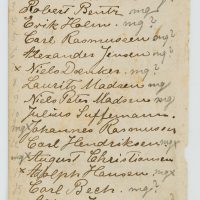 Robert Bentz mg?
Erik Holm. mg?
Carl Rasmussen mg?
Alexander Jensen mg?
× Niels Dænker. mg?
Laurits Madsen mg
Niels Peter Madsen mg
Julius Toffemann. mg
mg Johannes Rasmussen
Carl Hendriksen mg×
mg× August Christiansen
× Adolph Hansen. mg×
Carl Bech. mg?